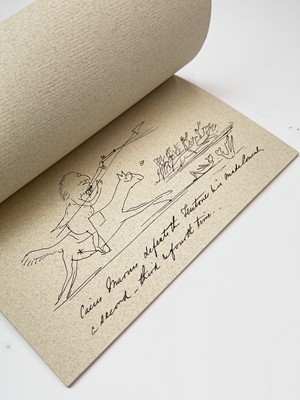 Caius Marius defeateth Teutons & is made Consul
a second - third & fourth time.